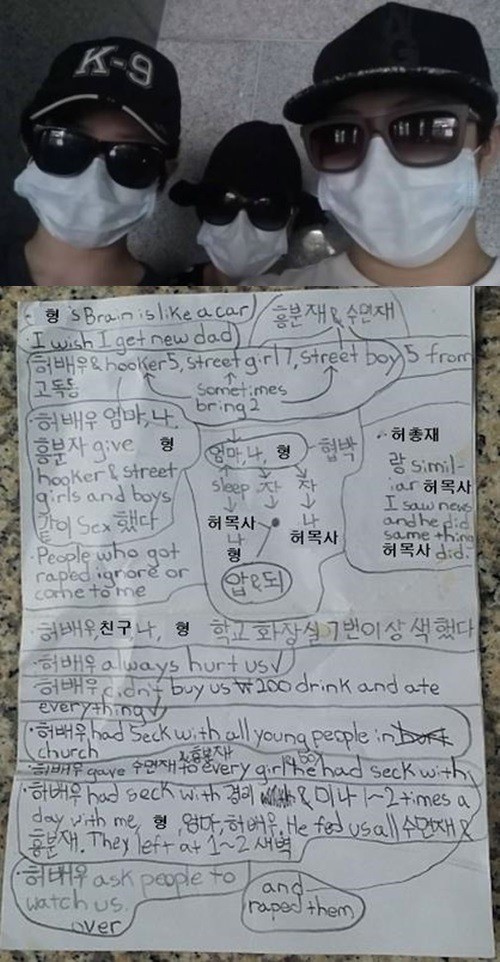 K-9
형's Brain is like a car
I wish I get new dad
흥분재 & 수면재
허배우 & hooker 5, street girl 7, street boy 5 from
고독동
sometimes
bring 2
허배우 엄마, 나,
흥분자 give 형
hooker & street
girls and boys
같이 Sex 했다
People who got
raped ignore or
come to me
엄마, 나, 형 협박
sleep 자 자
허목사 나
나 허목사
형
압 & 되
허총재
랑 simil-
iar 허목사
I saw news
and he did
same thing
허목사 did.
허배우, 친구, 나, 형 학교 화장실 7번이상 색했다
허배우 always hurt us
허배우 didn't buy us ₩200 drink and ate
everything
허배우 had Seck with all young people in
church
& 흥분재
허배우 gave 수면재 to every girl he had seck with
boy
허배우 had seck with & 미나 1~2 times a
day with me, 형, 엄마, 허배우. He fed us all 수면재 &
흥분재. They left at 1~2 새벽
허배우 ask people to
watch us.
over
and
raped them